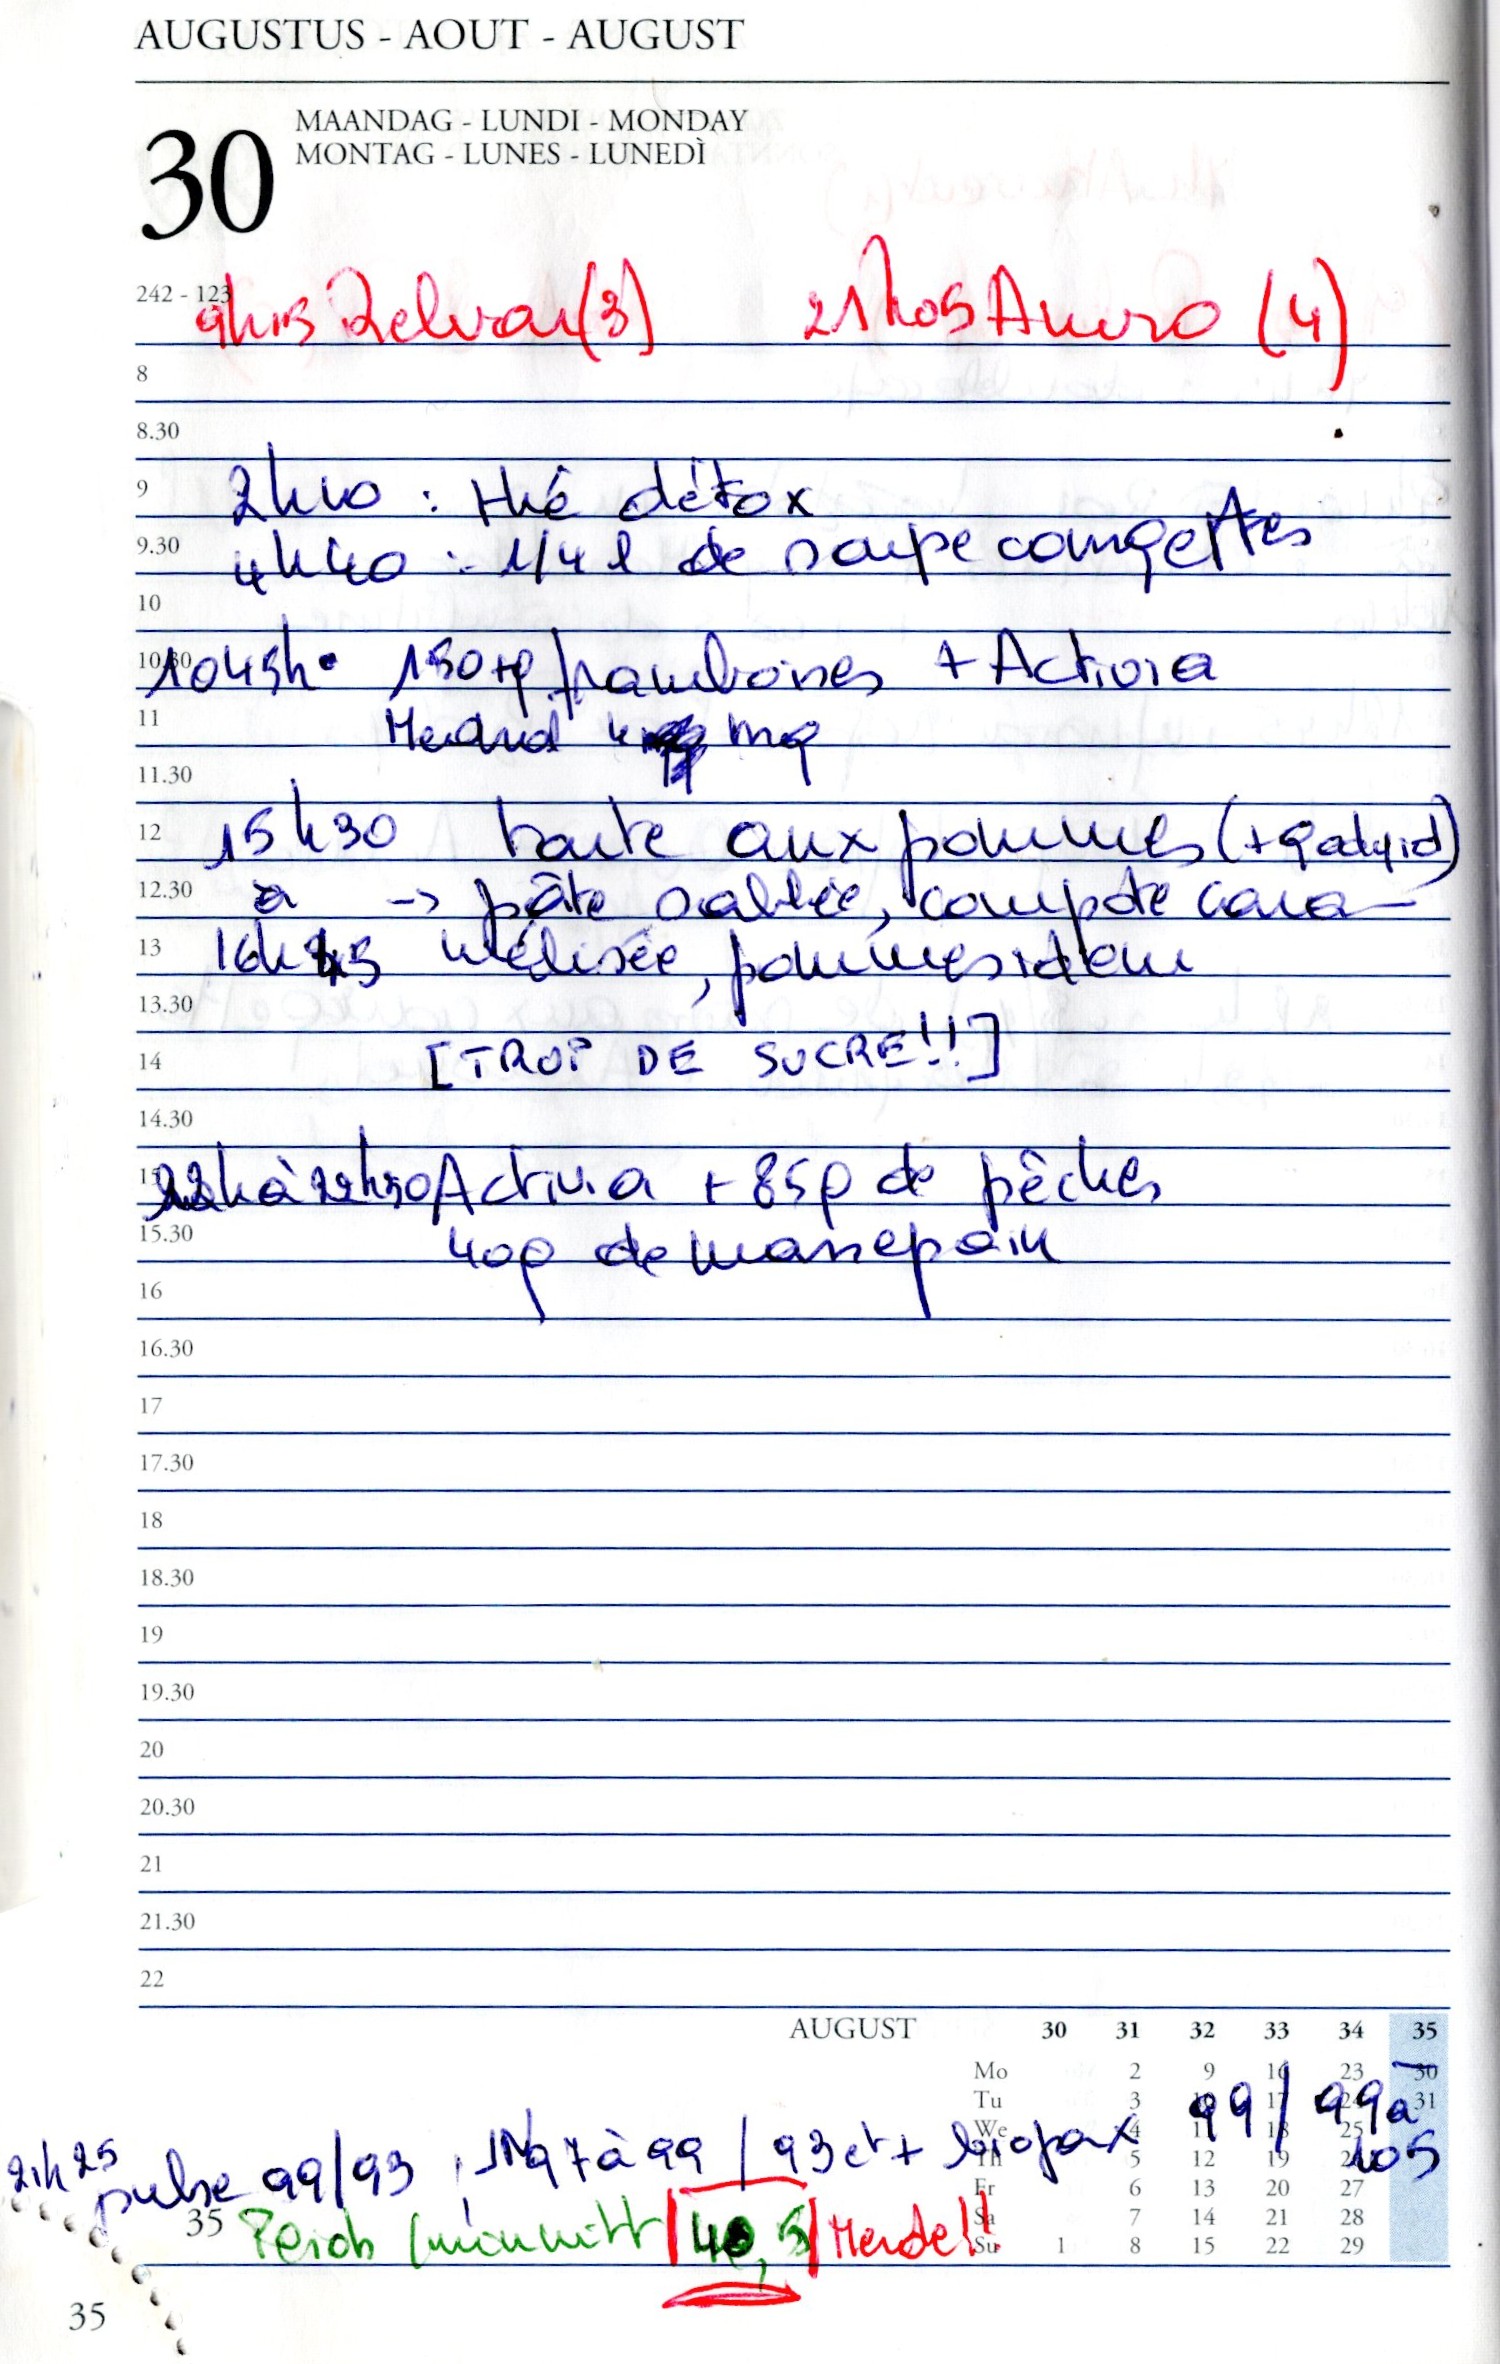 AUGUSTUS - AOUT - AUGUST
30
MAANDAG - LUNDI - MONDAY
MONTAG - LUNES - LUNEDÌ
242 - 123
9h15 Relvar (3) 21h05 Anoro (4)
8
8.30
9 2h40 : thé détox
9.30 4h40 : 1/4 l de soupe courgettes
10
10.30 1045h • 150 g framboises + Activia
11 Medrol 4 mg
11.30
12 15h30 tarte aux pommes (+ Qadyid)
12.30 à -> pâte sablée, compote cara-
13 16h45 mélisée, pommes idem
13.30
14 [TROP DE SUCRE!!]
14.30
15 22h à 22h30 Activia + 85g de pêches
15.30 40g de massepain
16
16.30
17
17.30
18
18.30
19
19.30
20
20.30
21
21.30
22
AUGUST 30 31 32 33 34 35
Mo 2 9 16 23 30
Tu 3 10 17 24 31
We 4 11 18 25
Th 5 12 19 26
Fr 6 13 20 27
Sa 7 14 21 28
Su 1 8 15 22 29
99/99 à 105
21h25 pulse 99/93, 97 à 99/93 et +
35 Poids (minuit) 40,5 Merde!!
35